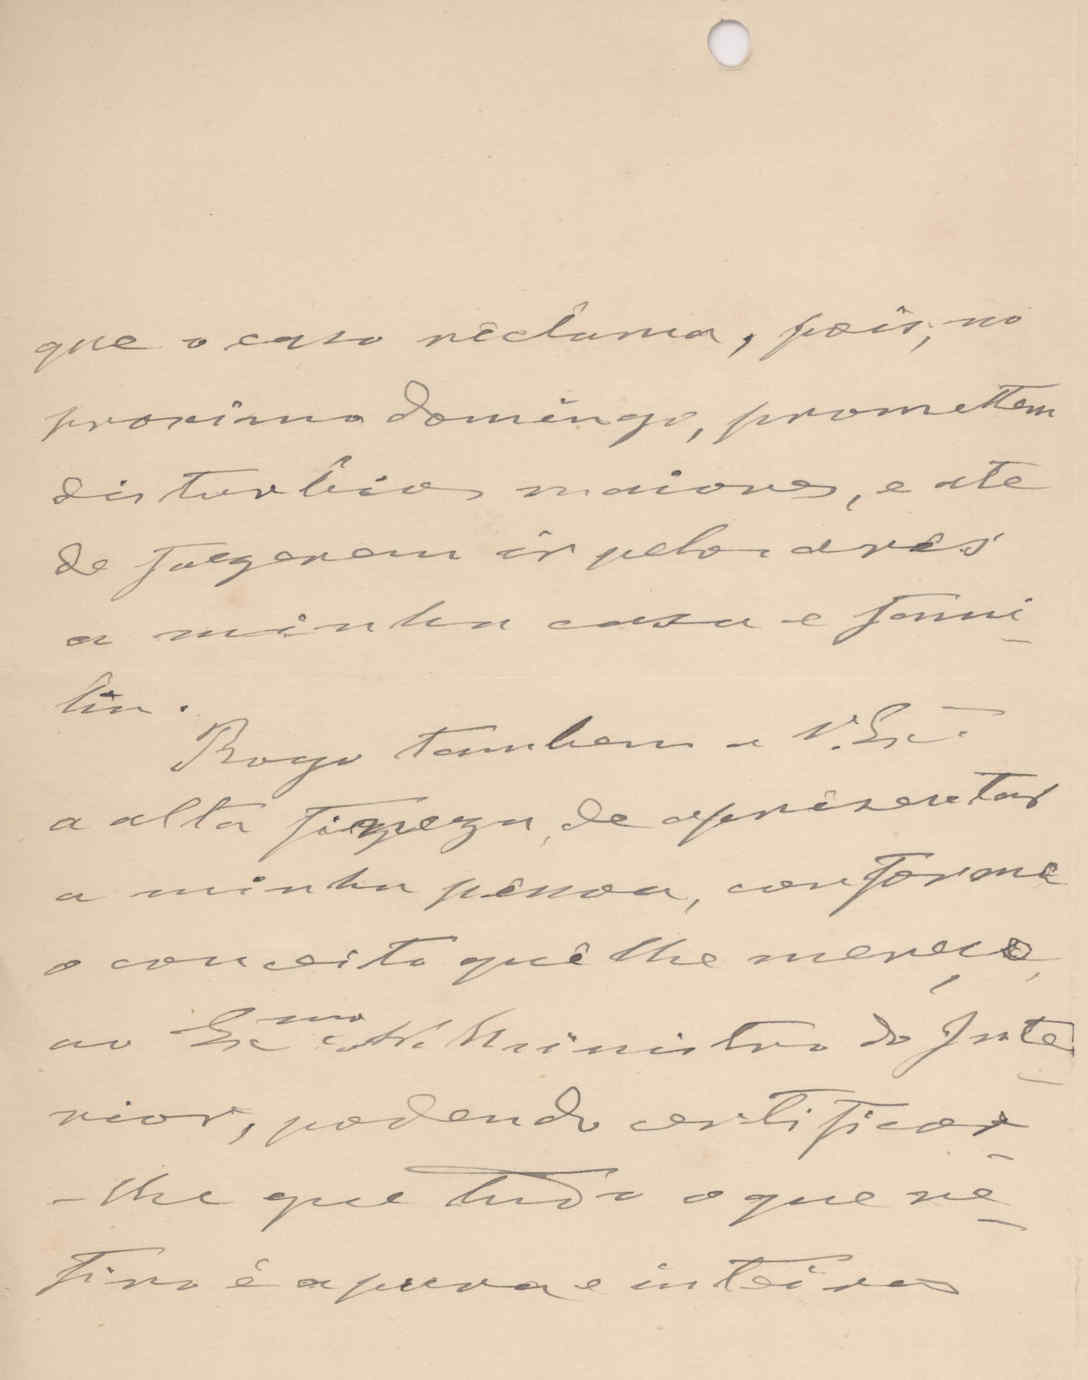 que o caso reclama, pois, no
proximo domingo, promettem
disturbios maiores, e ate
de fazerem ir pelos ares
a minha casa e fami
lia.
Rogo tambem a V. Exª.
a alta fineza, de apresentar
a minha pessoa, conforme
o conceito que lhe mereço,
ao Exmo Snr. Ministro do Inte_
rior, podendo certificar_
-lhe que tudo o que re_
firo é a pura e inteira